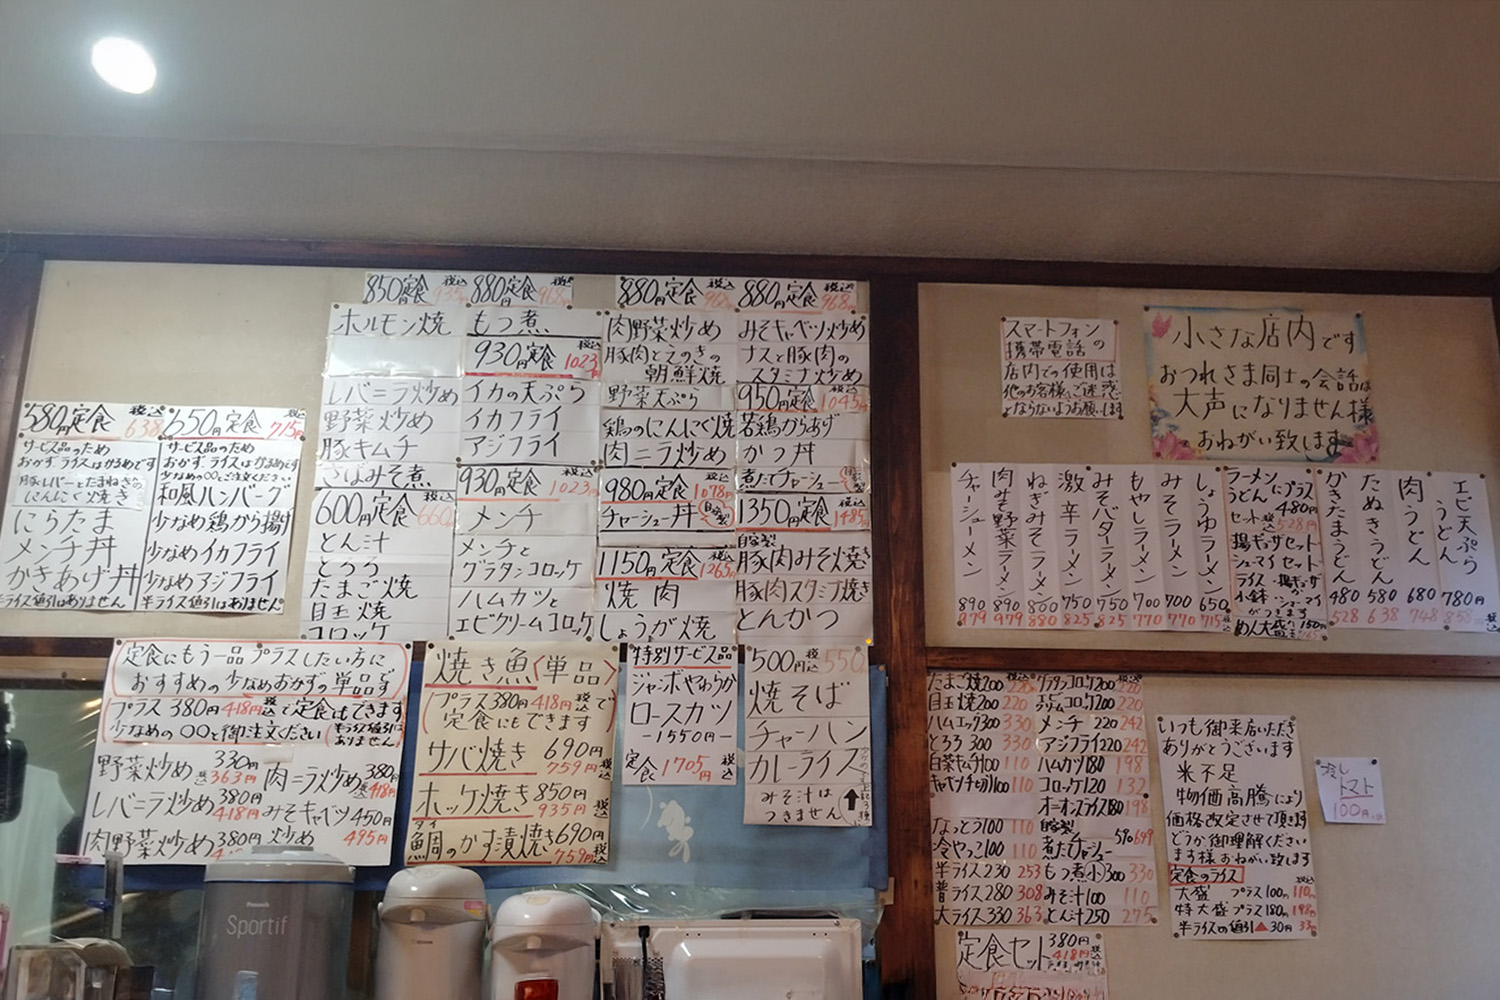 580円定食 税込 638
サービス品のため
おかず、ライスはかるめです
豚レバーとたまねぎの
にんにく焼き
にらたま
メンチ丼
かきあげ丼
半ライス値引はありません
650円定食 税込 715円
サービス品のため
おかず、ライスはかるめです
少なめの〇〇とご注文ください
和風ハンバーグ
少なめ鶏から揚げ
少なめイカフライ
少なめアジフライ
半ライス値引はありません。
850円定食 税込 935円
ホルモン焼
レバニラ炒め
野菜炒め
豚キムチ
さばみそ煮
600円定食 税込 660
とん汁
とろろ
たまご焼
目玉焼
コロッケ
880円定食 税込 968円
もつ煮
930円定食 税込 1023円
イカの天ぷら
イカフライ
アジフライ
930円定食 税込 1023円
メンチ
メンチと
グラタンコロッケ
ハムカツと
エビクリームコロッケ
880円定食 税込 968円
肉野菜炒め
豚肉とえのきの
朝鮮焼
野菜天ぷら
鶏のにんにく焼
肉ニラ炒め
980円定食 税込 1078円
チャーシュー丼 自家製
1150円定食 税込 1265円
焼肉
しょうが焼
880円定食 税込 968円
みそキャベツ炒め
ナスと豚肉の
スタミナ炒め
950円定食 税込 1045円
若鶏からあげ
かつ丼
煮たチャーシュー 自家製
1350円定食 税込 1485円
自家製
豚肉みそ焼き
豚肉スタミナ焼き
とんかつ
定食にもう一品プラスしたい方に
おすすめの少なめおかずの単品です
プラス380円 418円 税込 で定食にもできます
少なめの〇〇と御注文ください (半ライス値引は ありません)
野菜炒め 330円 税込363円
レバニラ炒め 380円 418円
肉野菜炒め 380円
肉ニラ炒め 380円 418円
みそキャベツ 450円
炒め 495円
焼き魚〈単品〉
(プラス380円 418円 税込 で
定食にもできます)
サバ焼き 690円 759円 税込
ホッケ焼き 850円 935円 税込
鯛のかす漬焼き 690円 759円 税込
タイ
特別サービス品
ジャンボやわらか
ロースカツ
-1550円-
定食 1705円 税込
500円 税込 550円
焼そば
チャーハン
カレーライス
みそ汁は
つきません
スマートフォン
携帯電話の
店内での使用は
他のお客様へご迷惑
とならないようお願いします
小さな店内です
おつれさま同士の会話は
大声になりません様
おねがい致します
チャーシューメン 890 979
肉生野菜ラーメン 890 979
ねぎみそラーメン 800 880
激辛ラーメン 750 825
みそバターラーメン 750 825
もやしラーメン 700 770
みそラーメン 700 770
しょうゆラーメン 650 715円
ラーメン
うどん にプラス
480円
セット 税込 528円
揚ギョーザセット
シューマイセット
ライス・揚ギョーザ
小鉢・シューマイ
がつきます
めん大盛 プラス150円
かきたまうどん 480 528
たぬきうどん 580 638
肉うどん 680 748
エビ天ぷらうどん 780円 858 税込
たまご焼200 220
目玉焼200 220
ハムエッグ300 330
とろろ300 330
白菜キムチ100 110
キャベツ千切り100 110
なっとう100 110
冷やっこ100 110
半ライス230 253
普ライス280 308
大ライス330 363
グラタンコロッケ200 220
エビクリームコロッケ200 220
メンチ220 242
アジフライ220 242
ハムカツ180 198
コロッケ120 132
オニオンスライス180 198
自家製
煮たチャーシュー 699
もつ煮(小)300 330
みそ汁100 110
とん汁250 275
定食セット 380円 418円 税込
いつも御来店いただき
ありがとうございます
米不足
物価高騰により
価格改定させて頂きます
どうか御理解ください
ます様おねがい致します
定食のライス 税込
大盛 プラス100円 110円
特大盛 プラス180円 198円
半ライスの値引▲30円 33円
冷し
トマト
100円
Panasonic
Sportif